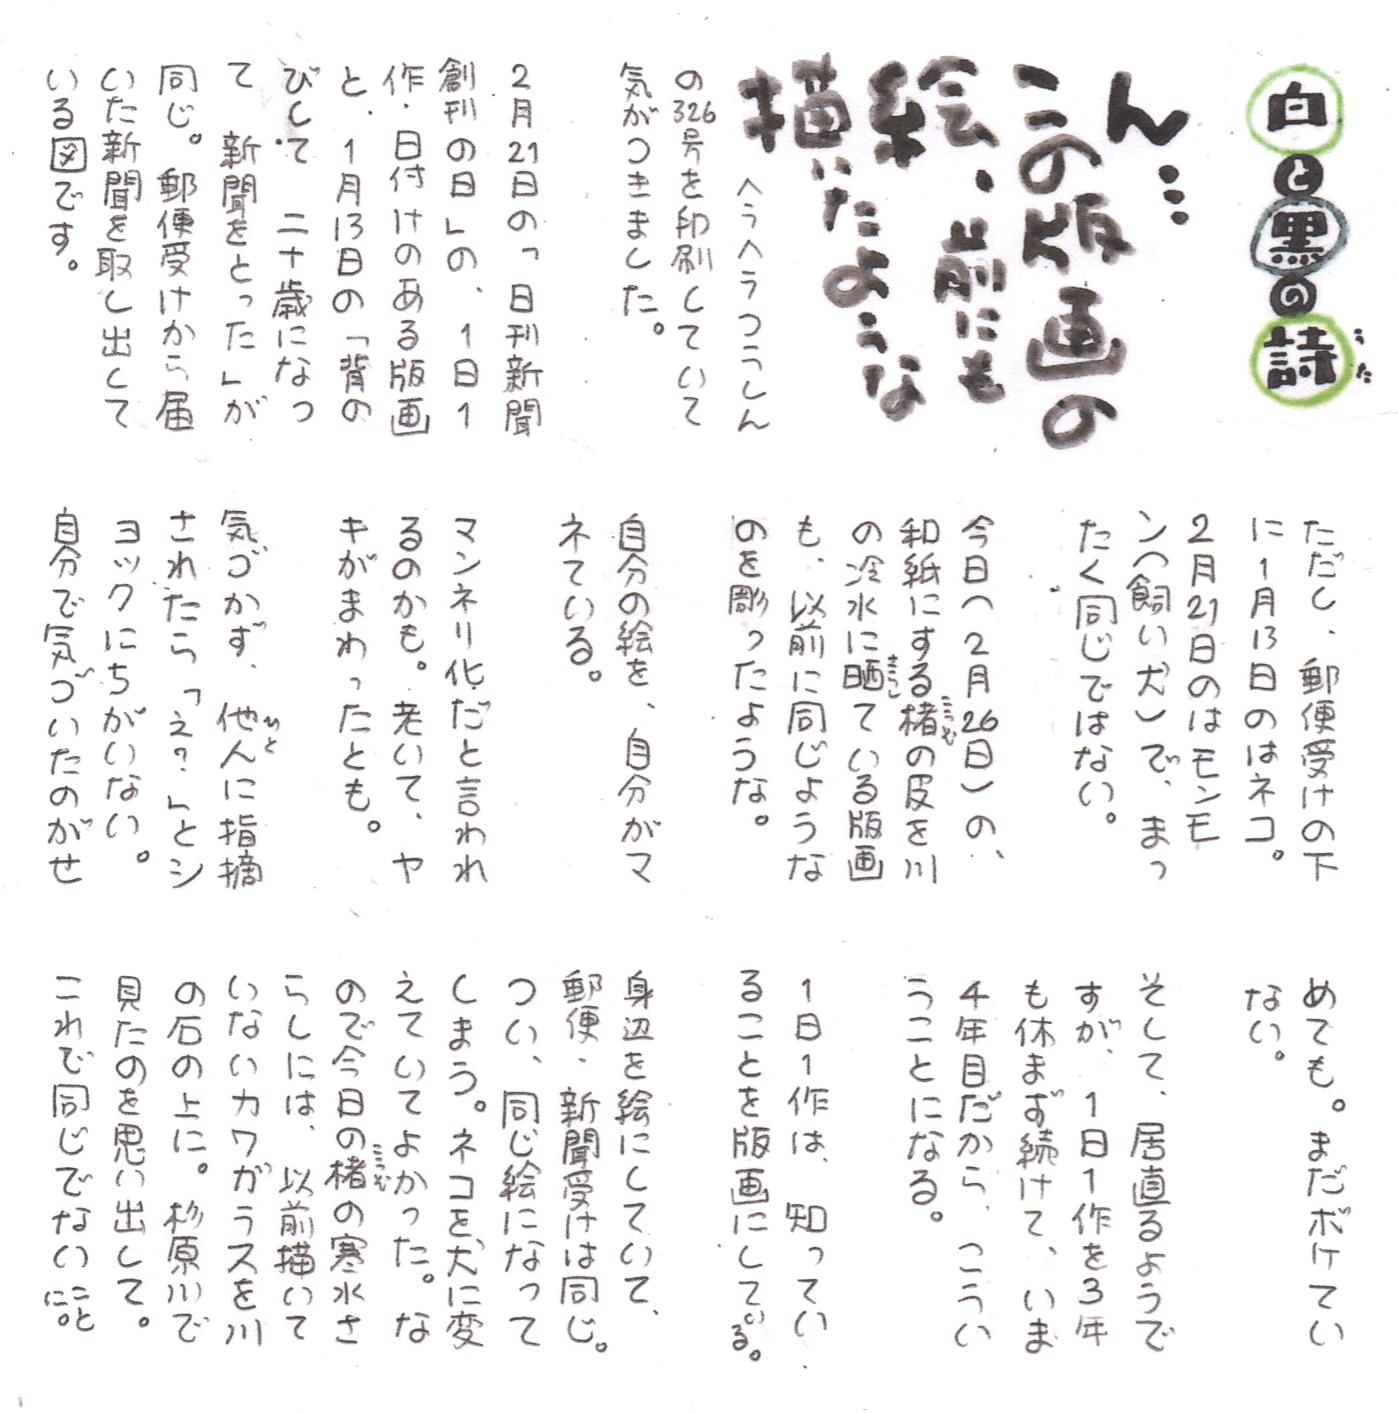 白と黒の詩
うた
ん…
この版画の
絵、前にも
描いたような
ヘラヘラつうしん
の326号を印刷していて
気がつきました。
2月21日の「日刊新聞
創刊の日」の、1日1
作・日付けのある版画
と、1月13日の「背の
びして 二十歳になっ
て 新聞をとった」が
同じ。郵便受けから届
いた新聞を取し出して
いる図です。
ただし、郵便受けの下
に1月13日のはネコ。
2月21日のはモンモ
ン(飼い犬)で、まっ
たく同じではない。
今日(2月26日)の、
和紙にする楮の皮を川
こうむ
の冷水に晒ている版画
さらし
も、以前に同じような
のを彫ったような。
自分の絵を、自分がマ
ネている。
マンネリ化だと言われ
るのかも。老いて、ヤ
キがまわったとも。
気づかず、他人に指摘
ひと
されたら「え?」とシ
ョックにちがいない。
自分で気づいたのがせ
めても。まだボケてい
ない。
そして、居直るようで
すが、1日1作を3年
も休まず続けて、いま
4年目だから、こうい
うことになる。
1日1作は、知ってい
ることを版画にしている。
身辺を絵にしていて、
郵便・新聞受けは同じ。
つい、同じ絵になって
しまう。ネコを犬に変
えていてよかった。な
ので今日の楮の寒水さ
こうむ
らしには、以前描いて
いないカワガラスを川
の石の上に。杉原川で
見たのを思い出して。
これで同じでないことに。